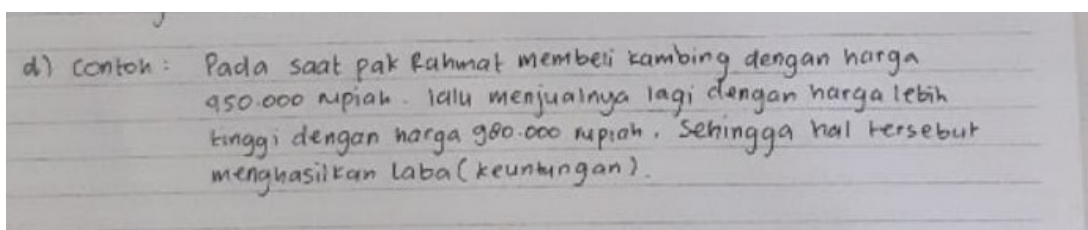 d) Contoh : Pada saat pak Rahmat membeli kambing dengan harga
950.000 rupiah. lalu menjualnya lagi dengan harga lebih
tinggi dengan harga 980.000 rupiah. Sehingga hal tersebut
menghasilkan laba (keuntungan).